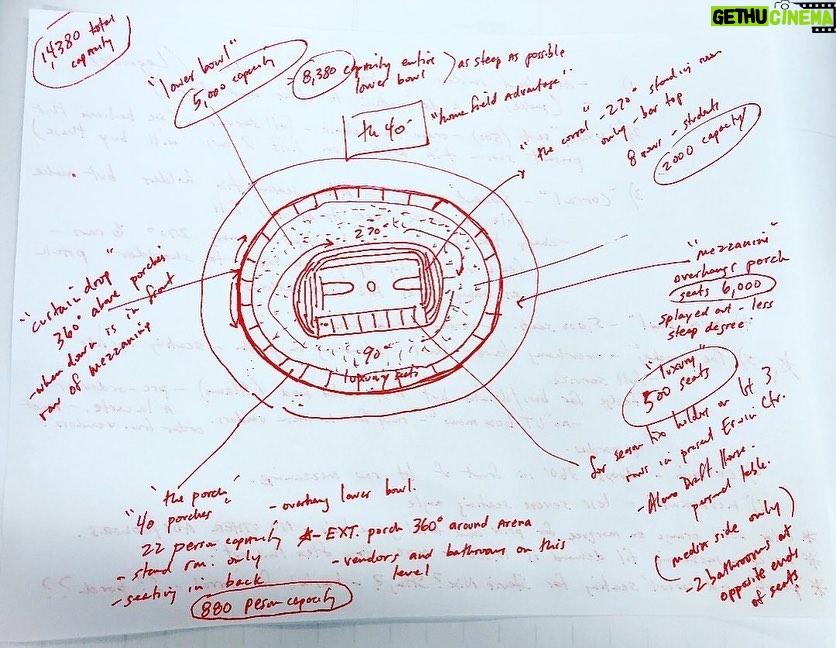 GETHUCINEMA
14,380 total
capacity
"lower bowl"
5,000 capacity
- 8,380 capacity entire
lower bowl
) as steep as possible
the 40
"home field advantage"
"the corral" - 270° stand in rm
only - bar top
8 rows - students
2000 capacity
"mezzanine"
overhangs porch
seats 6,000
splayed out - less
steep degree
"luxury"
500 seats
for season tix holders on 1st 3
rows in present Erwin Ctr.
- Alamo Draft House
personal table.
(median side only)
- 2 bathrooms at
opposite ends
of seats
"curtain drop"
360° above porches
- when down is in front
row of mezzanine
270°
90°
luxury seats
"the porch"
"40 porches
22 person capacity
- stand rm. only
- seating in back
880 person capacity
- overhang lower bowl.
- EXT. porch 360° around Arena
- vendors and bathrooms on this
level